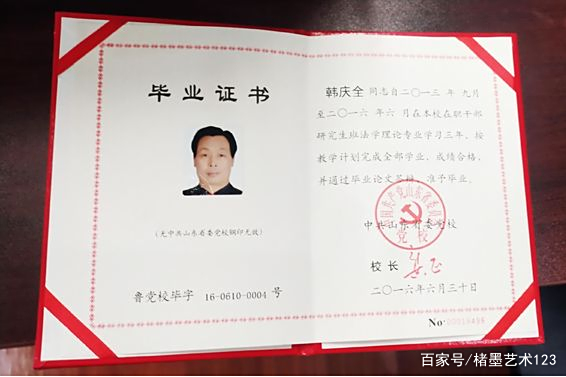 毕业证书
(无中共山东省委党校钢印无效)
鲁党校毕字 16-0610-0004 号
韩庆全 同志自二〇一三 年 九月
至二〇一六 年 六 月在本校在职干部
研究生班法学理论专业学习三年,按
教学计划完成全部学业,成绩合格,
并通过毕业论文答辩,准予毕业。
中共山东省委党校
校 长
二〇一六年六月三十日
No
百家号/楮墨艺术123